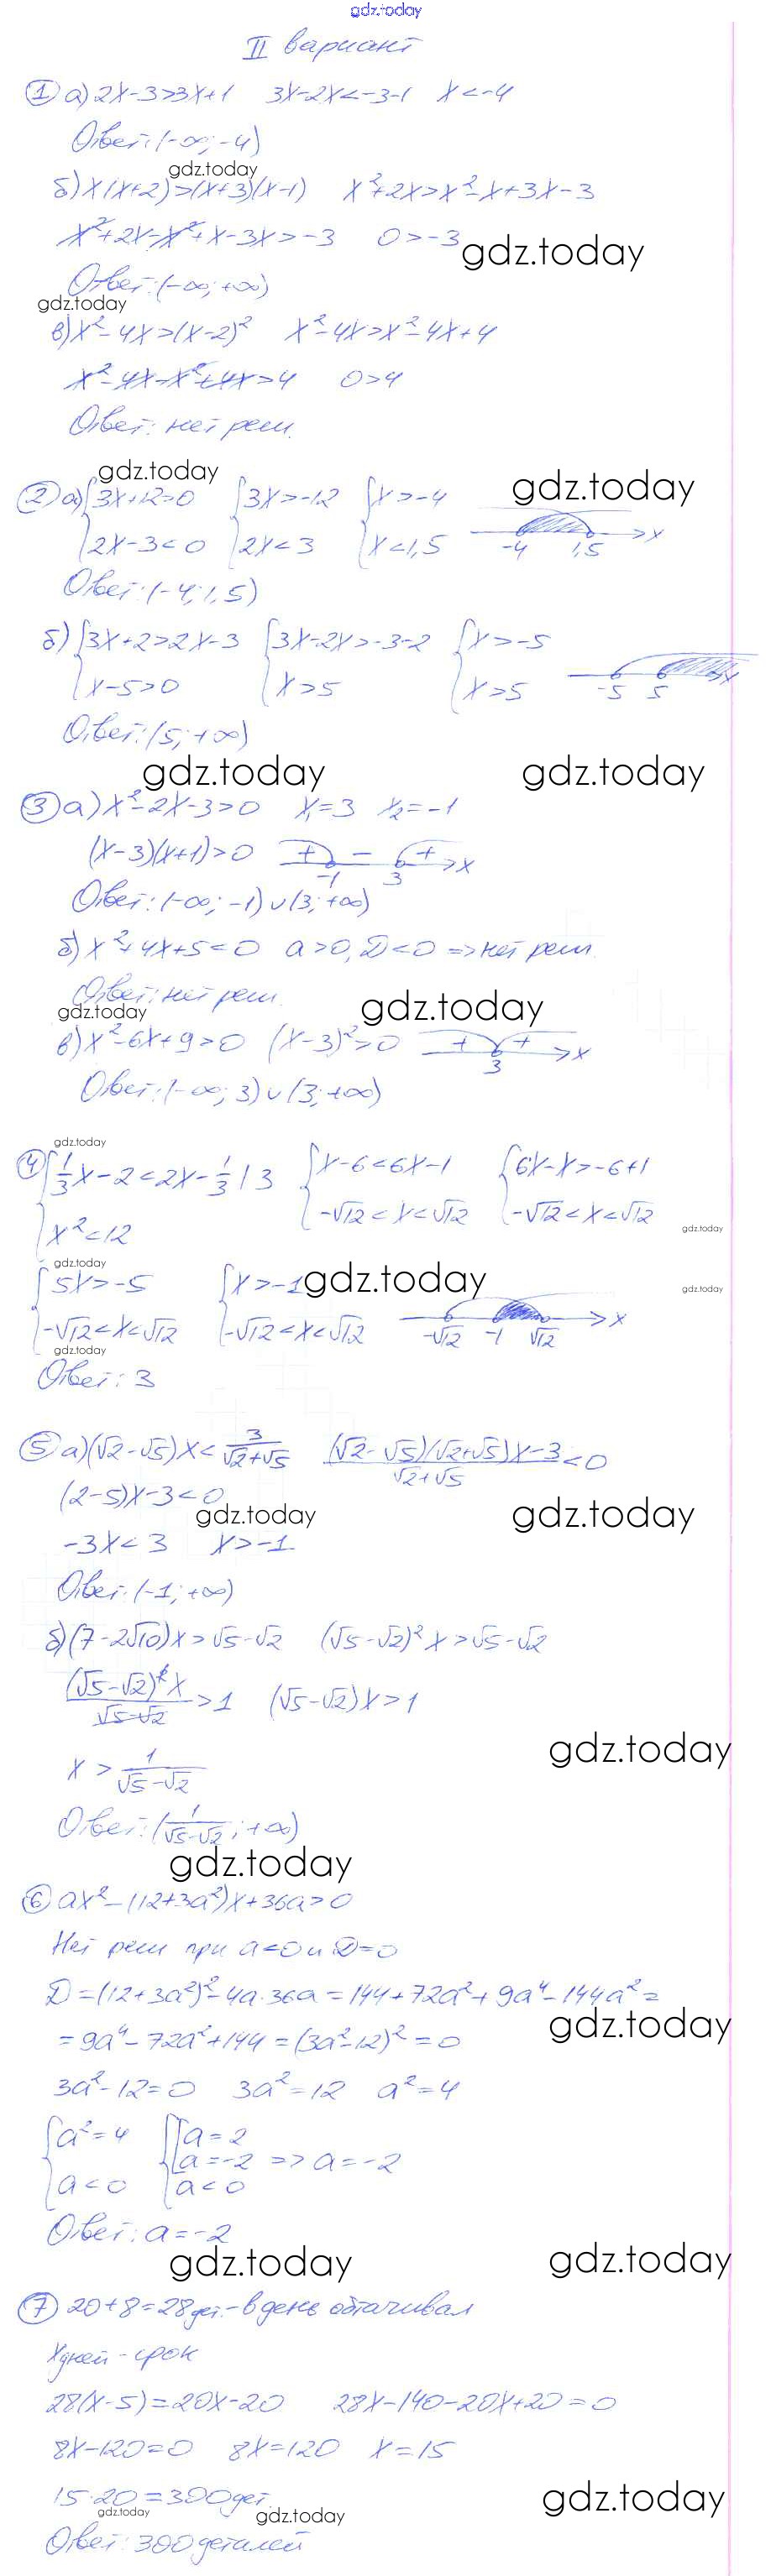 gdz.today
II вариант
① а) 2x-3>3x+1 3x-2x<-3-1 x<-4
Ответ: (-∞; -4)
gdz.today
б) x(x+2)>(x+3)(x-1) x²+2x>x²-x+3x-3
x²+2x-x²+x-3x>-3 0>-3
gdz.today
Ответ: (-∞; +∞)
gdz.today
в) x²-4x>(x-2)² x²-4x>x²-4x+4
x²-4x-x²+4x>4 0>4
Ответ: нет реш.
gdz.today gdz.today
② а) {3x+12>0 {3x>-12 {x>-4
{2x-3<0 {2x<3 {x<1,5 -4 1,5 x
Ответ: (-4; 1,5)
б) {3x+2>2x-3 {3x-2x>-3-2 {x>-5
{x-5>0 {x>5 {x>5 -5 5 x
Ответ: (5; +∞)
gdz.today gdz.today
③ а) x²-2x-3>0 x₁=3 x₂=-1
(x-3)(x+1)>0 + - + -1 3 x
Ответ: (-∞; -1)∪(3; +∞)
б) x²+4x+5<0 a>0, D<0 => нет реш.
Ответ: нет реш.
gdz.today gdz.today
в) x²-6x+9>0 (x-3)²>0 + + 3 x
Ответ: (-∞; 3)∪(3; +∞)
gdz.today
④ {1/3x-2<2x-1/3 |3 {x-6<6x-1 {6x-x>-6+1
{x²<12 {-√12<x<√12 {-√12<x<√12
gdz.today
gdz.today gdz.today gdz.today
{5x>-5 {x>-1
{-√12<x<√12 {-√12<x<√12 -√12 -1 √12 x
gdz.today
Ответ: 3
⑤ а) (√2-√5)x<3/(√2+√5) ((√2-√5)(√2+√5)x-3)/(√2+√5)<0
(2-5)x-3<0
gdz.today gdz.today
-3x<3 x>-1
Ответ: (-1; +∞)
б) (7-2√10)x>√5-√2 (√5-√2)²x>√5-√2
(√5-√2)²x/(√5-√2)>1 (√5-√2)x>1
gdz.today
x>1/(√5-√2)
Ответ: (1/(√5-√2); +∞)
gdz.today
⑥ ax²-(12+3a²)x+36a>0
Нет реш при a<0 и D=0
D=(12+3a²)²-4a·36a=144+72a²+9a⁴-144a²=
gdz.today
=9a⁴-72a²+144=(3a²-12)²=0
3a²-12=0 3a²=12 a²=4
{a²=4 {[a=2
[a=-2 => a=-2
{a<0 {a<0
Ответ: a=-2
gdz.today gdz.today
⑦ 20+8=28 дет.-в день обтачивал
x дней - срок
28(x-5)=20x-20 28x-140-20x+20=0
8x-120=0 8x=120 x=15
15·20=300 дет.
gdz.today
gdz.today gdz.today
Ответ: 300 деталей